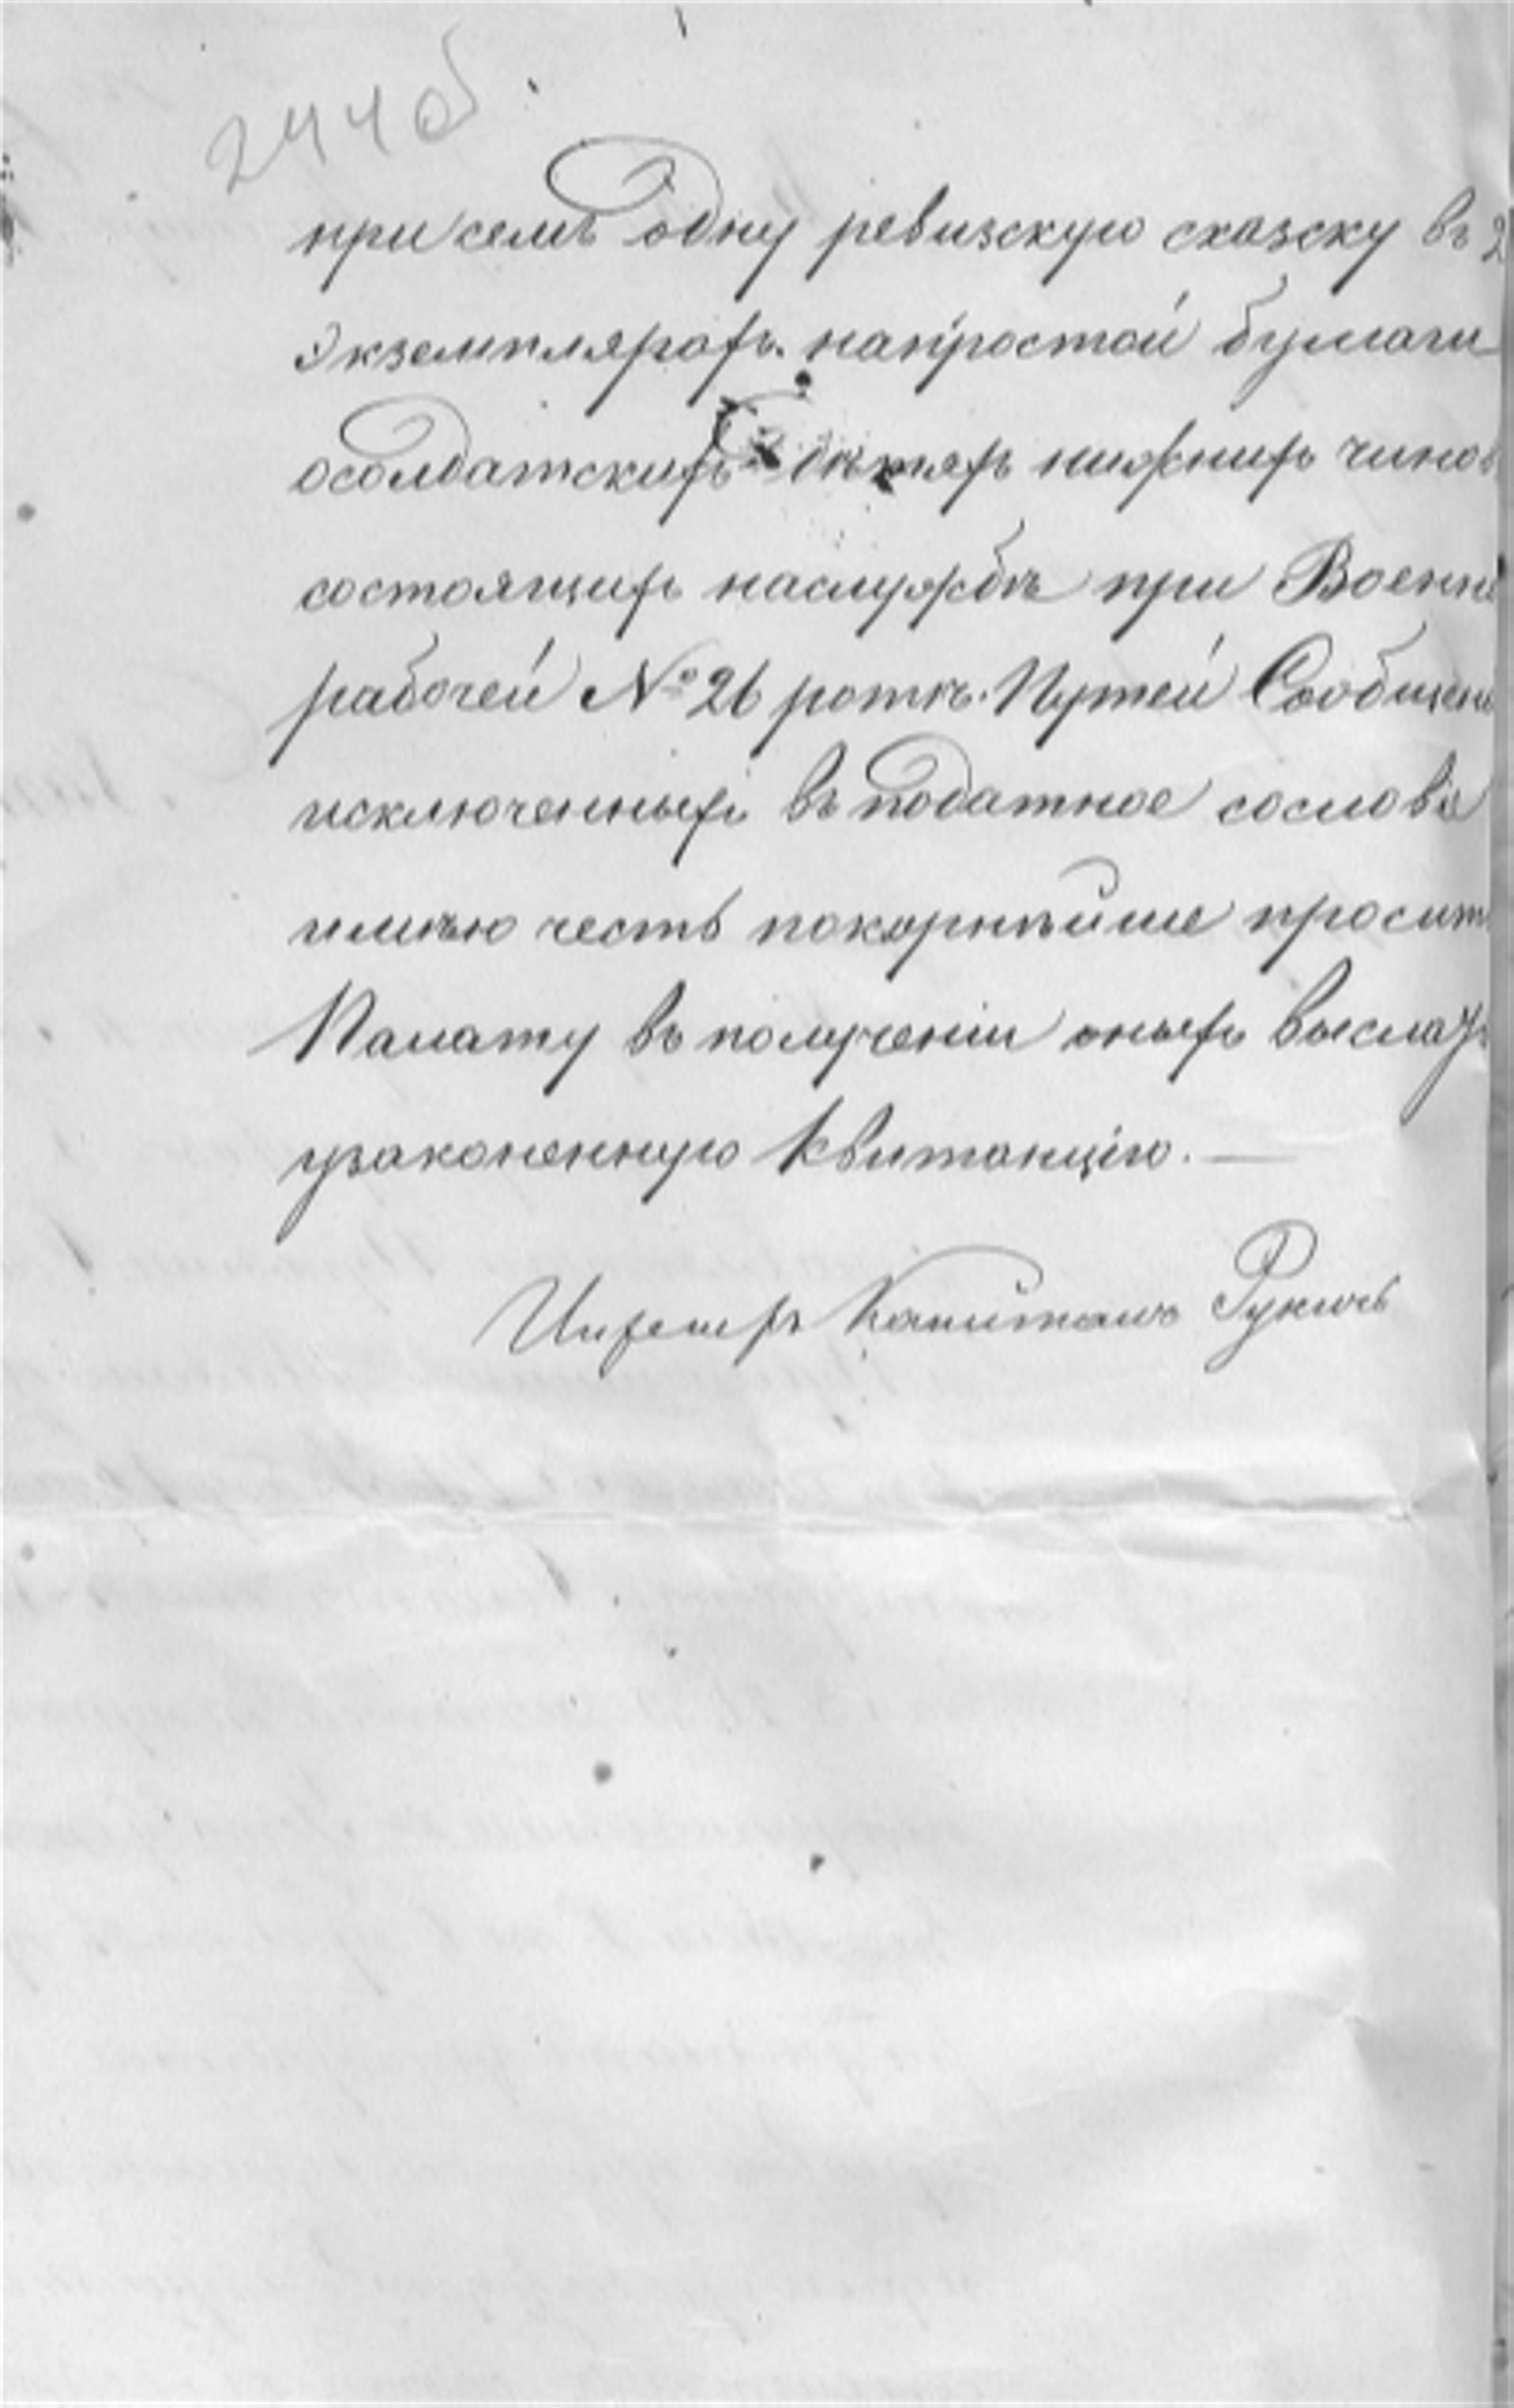 244об.
при семъ одну ревизскую сказку въ 2
экземплярахъ. на простой бумаги
о солдатскихъ дѣтяхъ нижнихъ чинов
состоящихъ на службѣ при Военно
рабочей № 26 ротѣ. Путей Сообщен
исключенныхъ въ податное сословіе
имѣю честь покорнѣйше просит
Палату въ полученіи оныхъ выслать
узаконенную квитанцію. —
Инженеръ Капитанъ